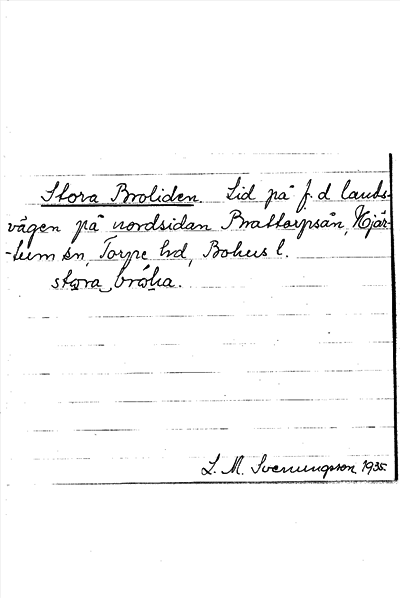 Stora Broliden. Lid på f.d lands-
vägen på nordsidan Brattorpsån, Hjär-
-tum sn, Torpe hd, Bohus l.
L. M. Svenungsson 1935.